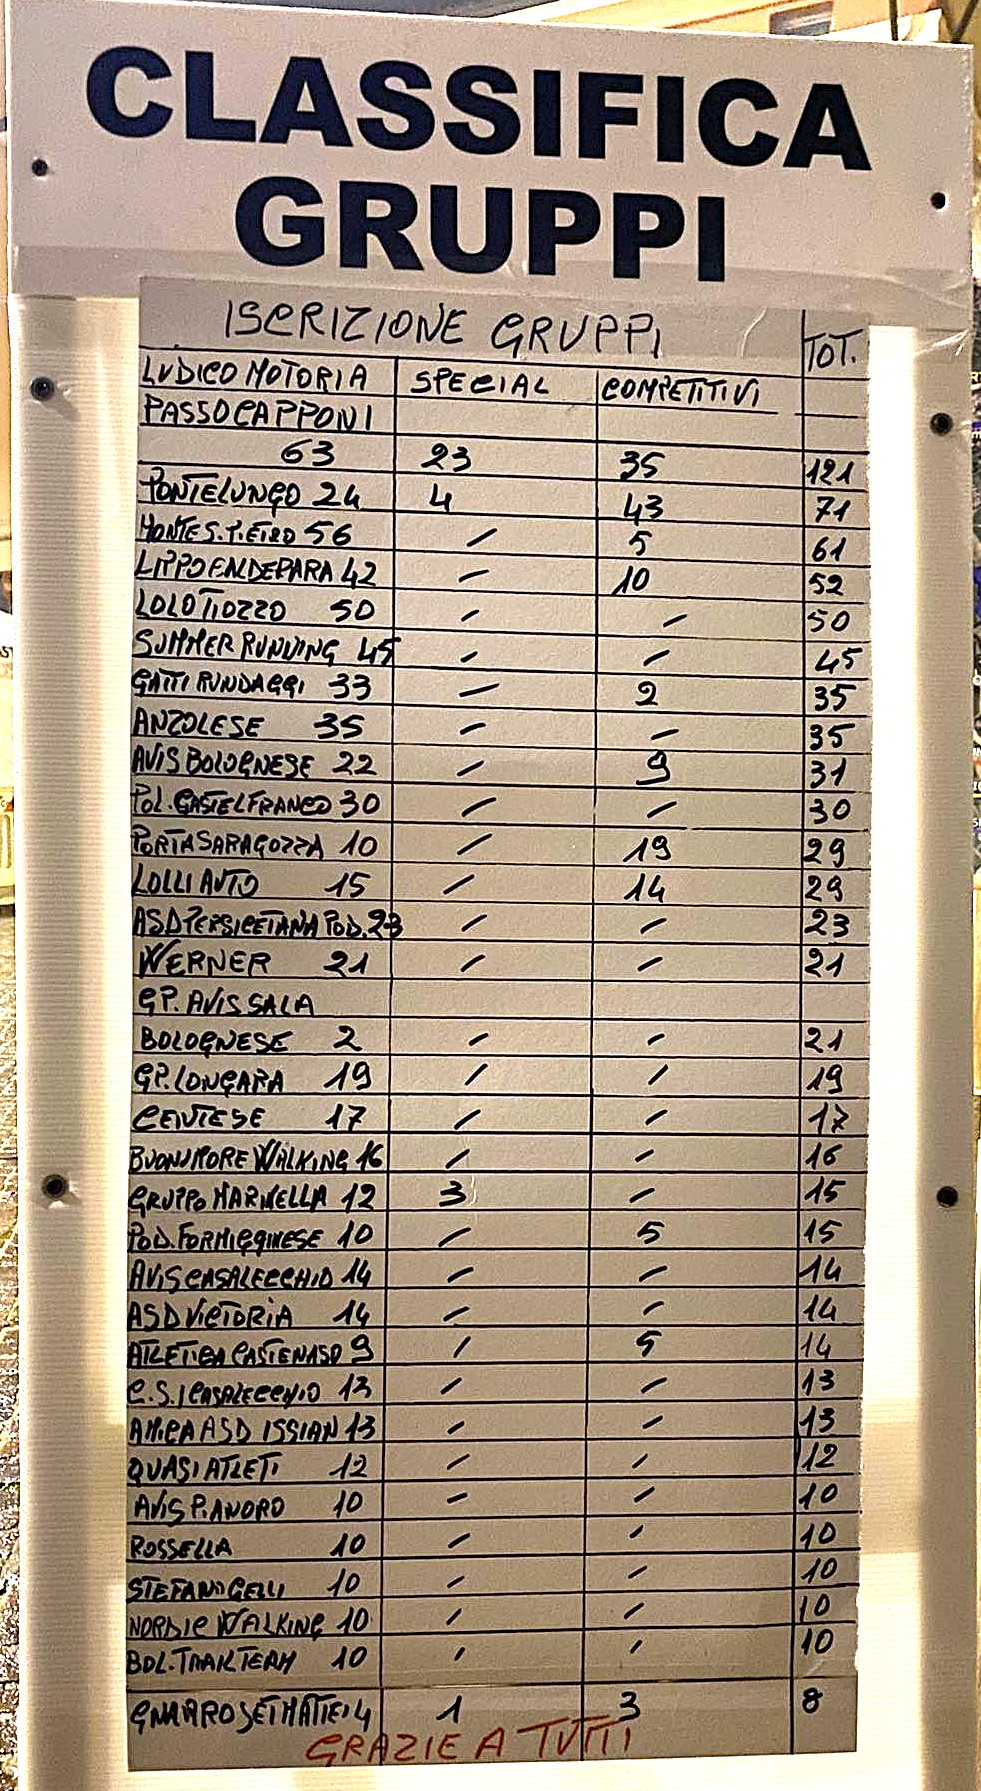 CLASSIFICA
GRUPPI
ISCRIZIONE GRUPPI TOT.
LUDICO MOTORIA SPECIAL COMPETITIVI
PASSOCAPPONI
63 23 35 121
PONTELUNGO 24 4 43 71
MONTE S. PIETRO 56 / 5 61
LIPPO E ALDEPARA 42 / 10 52
LOLOTIOZZO 50 / / 50
SUMMER RUNNING 45 / / 45
GATTI RUNDAGGI 33 / 2 35
ANZOLESE 35 / / 35
AVIS BOLOGNESE 22 / 9 31
POL. CASTELFRANCO 30 / / 30
PORTA SARAGOZZA 10 / 19 29
LOLLI AUTO 15 / 14 29
ASD PERSICETANA POD. 23 / / 23
WERNER 21 / / 21
GP. AVIS SALA
BOLOGNESE 2 / / 21
GP. LONGARA 19 / / 19
CENTESE 17 / / 17
BUONUMORE WALKING 16 / / 16
GRUPPO MARINELLA 12 3 / 15
POD. FORMIGGINESE 10 / 5 15
AVIS CASALECCHIO 14 / / 14
ASD VICTORIA 14 / / 14
ATLETICA CASTENASO 9 / 5 14
C.S.I CASALECCHIO 13 / / 13
AMICA ASD ISSIAN 13 / / 13
QUASI ATLETI 12 / / 12
AVIS PIANORO 10 / / 10
ROSSELLA 10 / / 10
STEFANO GELLI 10 / / 10
NORDIC WALKING 10 / / 10
BOL. TRAIL TEAM 10 / / 10
4 1 3 8
GRAZIE A TUTTI